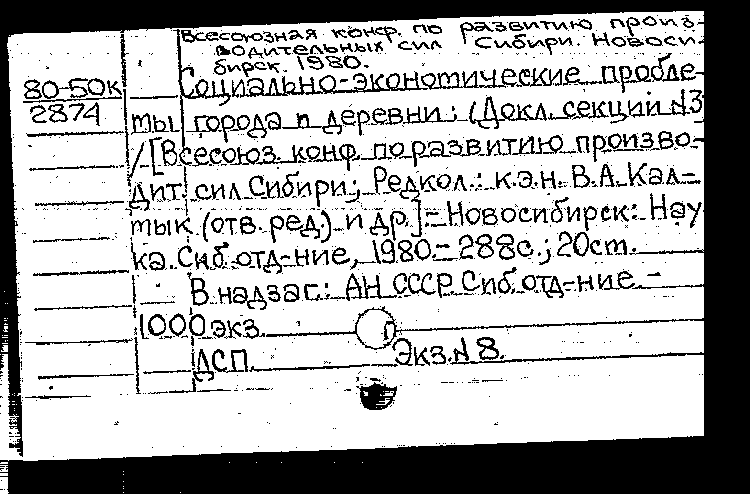 Всесоюзная конф. по развитию произ-
водительных сил Сибири. Новоси-
бирск. 1980.
80-50к
2874
Социально-экономические пробле-
мы города и деревни: (Докл. секции N3)
/[Всесоюз. конф. по развитию произво-
дит. сил Сибири; Редкол.: к.э.н. В.А. Кал-
мык (отв. ред.) и др.].- Новосибирск: Нау-
ка. Сиб. отд-ние, 1980.- 288с.; 20см.
В надзаг.: АН СССР. Сиб. отд-ние.-
1000 экз.
ДСП. Экз. N 8.